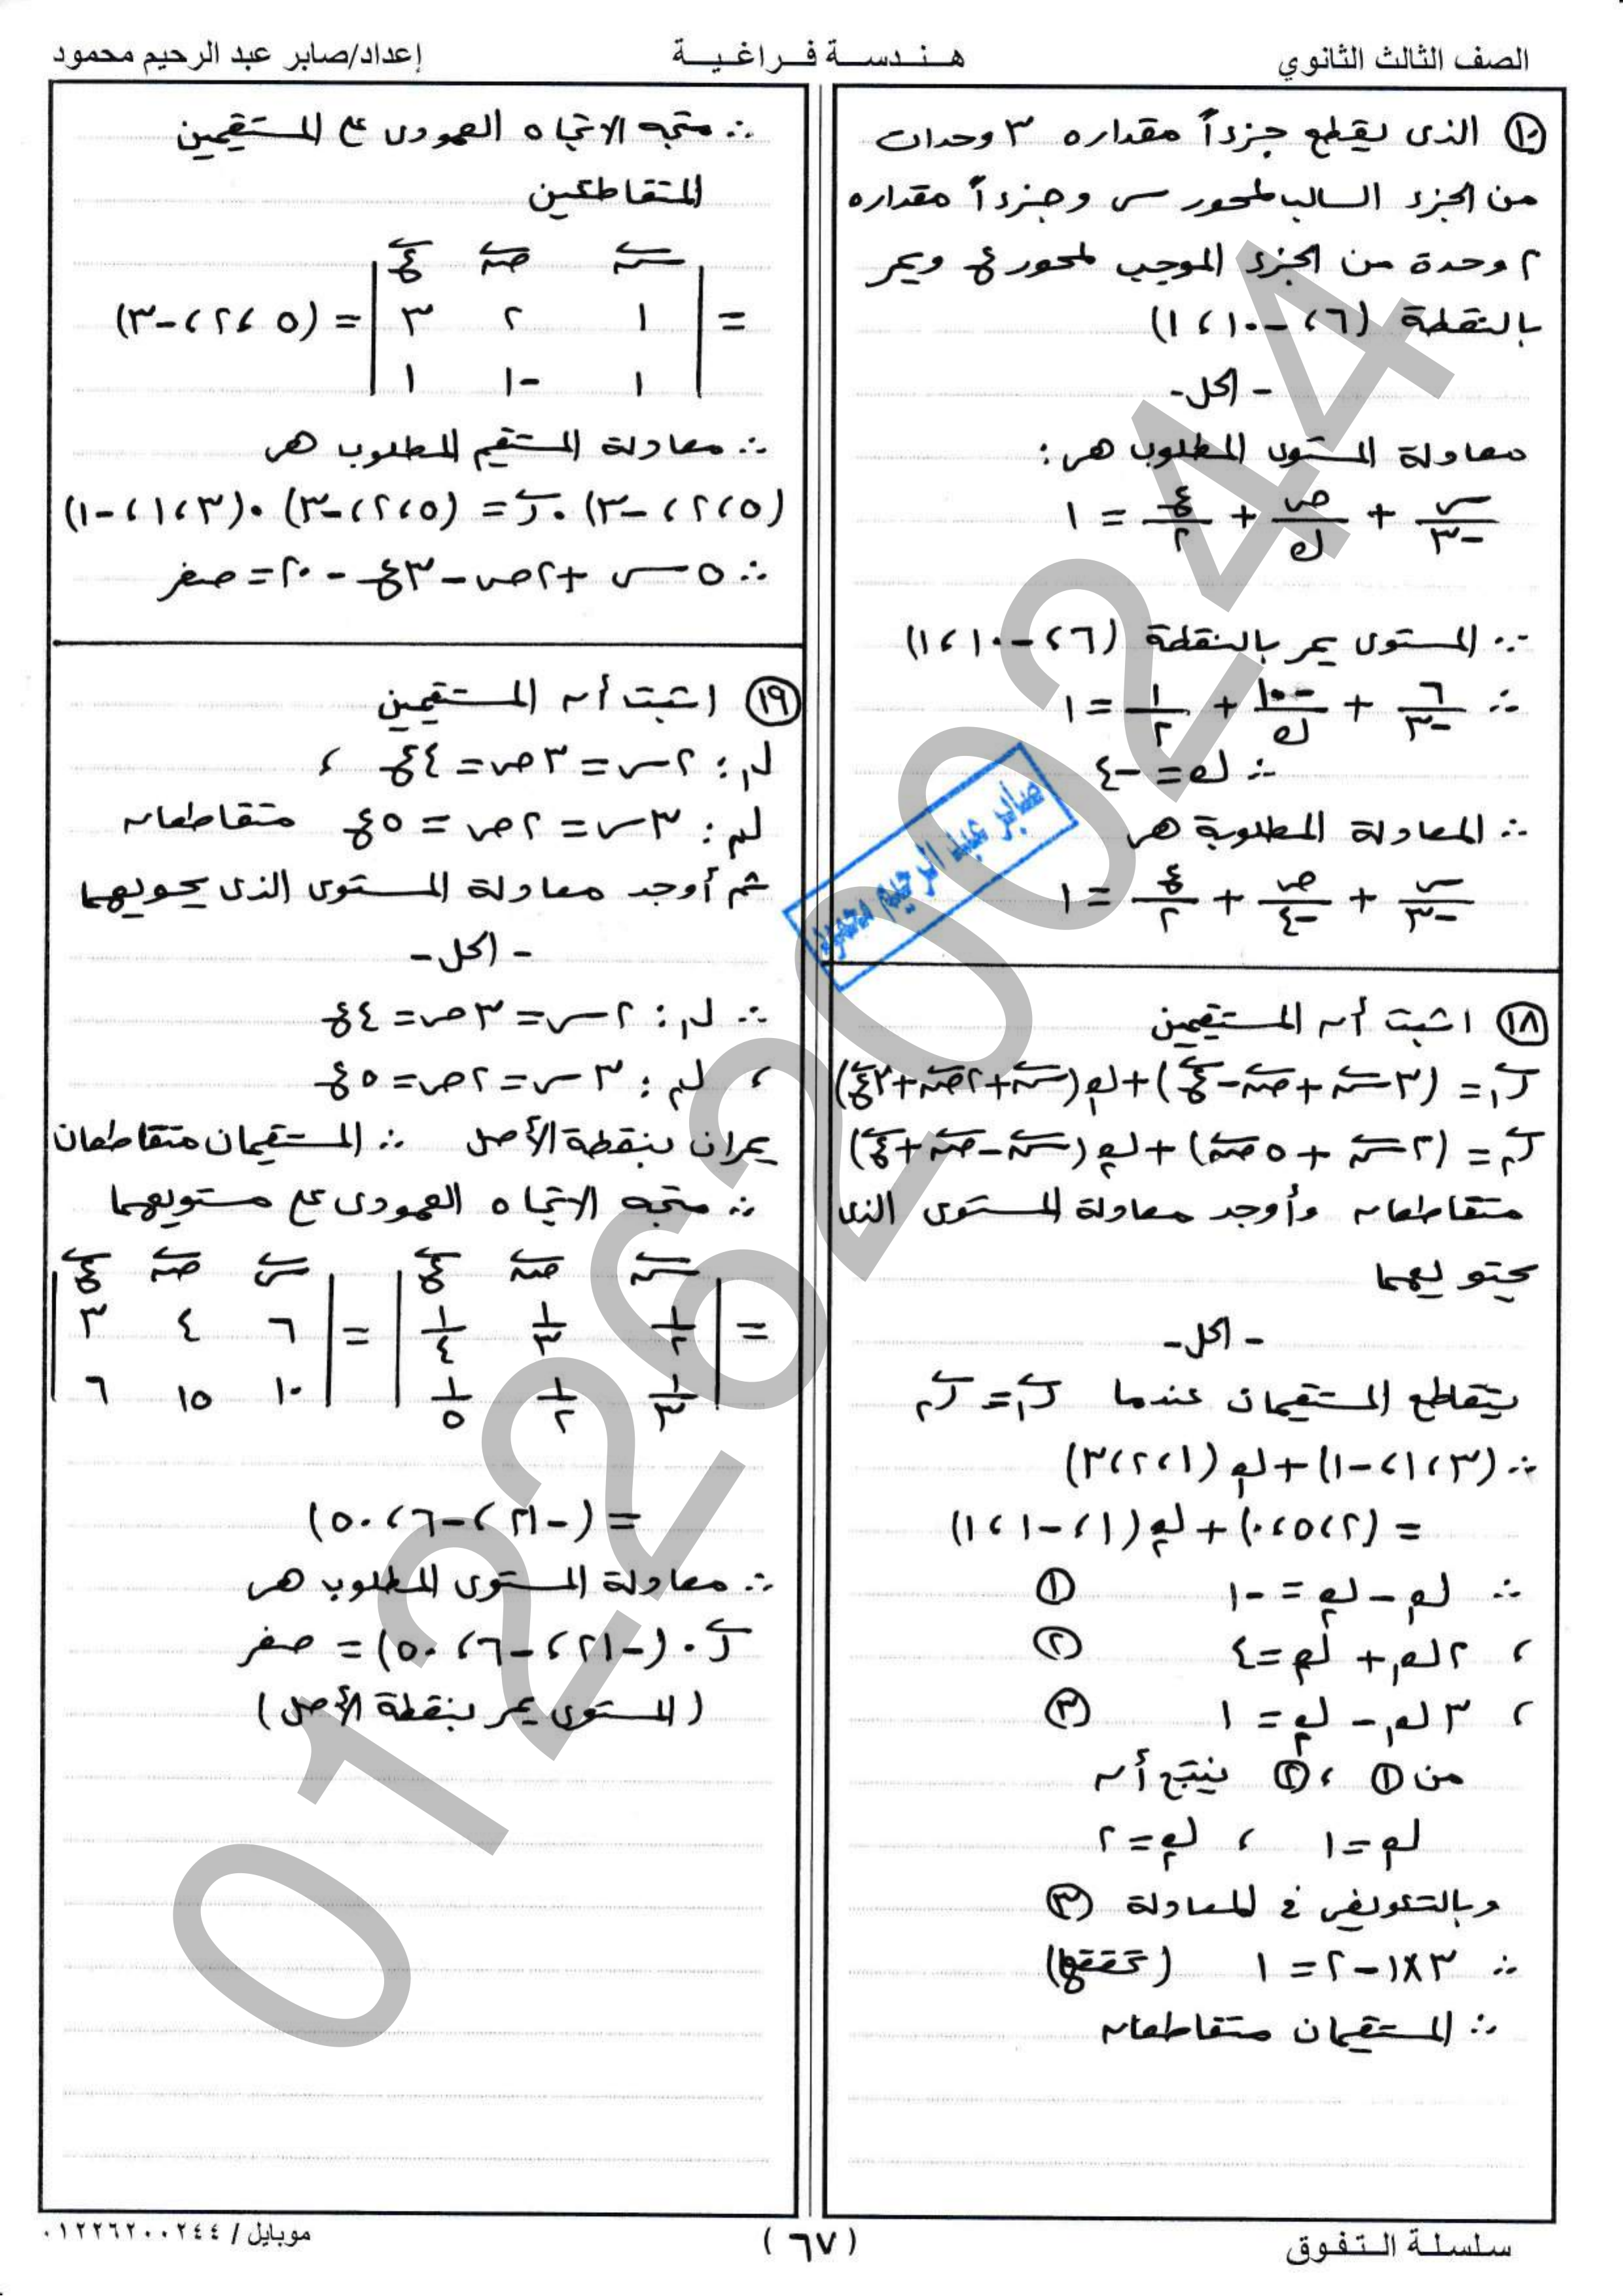 الصف الثالث الثانوي
هـنـدسـة فـراغيـة
إعداد/صابر عبد الرحيم محمود
١٠ الذى يقطع جزءاً مقداره ٣ وحدات
من الجزء السالب لمحور س وجزءاً مقداره
٢ وحدة من الجزء الموجب لمحور ع ويمر
بالنقطة (٦، -١٠، ١)
- الحل -
معادلة المستوى المطلوب هى:
س/-٣ + ص/ك + ع/٢ = ١
∵ المستوى يمر بالنقطة (٦، -١٠، ١)
∴ ٦/-٣ + -١٠/ك + ١/٢ = ١
∴ ك = -٤
∴ المعادلة المطلوبة هى
س/-٣ + ص/-٤ + ع/٢ = ١
١٨ اثبت أن المستقيمين
ر₁ = (٣س + ص - ع) + ك₁(س + ٢ص + ٣ع)
ر₂ = (٢س + ٥ص) + ك₂(س - ص + ع)
متقاطعان وأوجد معادلة المستوى الذى
يحتويهما
- الحل -
يتقاطع المستقيمان عندما ر₁ = ر₂
∴ (٣، ١، -١) + ك₁(١، ٢، ٣)
= (٢، ٥، ٠) + ك₂(١، -١، ١)
∴ ك₁ - ك₂ = -١ ①
، ٢ك₁ + ك₂ = ٤ ②
، ٣ك₁ - ك₂ = ١ ③
من ① ، ② ينتج أن
ك₁ = ١ ، ك₂ = ٢
وبالتعويض فى المعادلة ③
∴ ٣×١ - ٢ = ١ (تحققها)
∴ المستقيمان متقاطعان
∴ متجه الاتجاه العمودى على المستقيمين
المتقاطعين
س ص ع
= | ١ ٢ ٣ | = (٥، ٢، -٣)
١ -١ ١
∴ معادلة المستقيم المطلوب هى
(٥، ٢، -٣) · ر = (٥، ٢، -٣) · (٣، ١، -١)
∴ ٥س + ٢ص - ٣ع - ٢٠ = صفر
١٩ اثبت أن المستقيمين
ل₁ : ٢س = ٣ص = ٤ع ،
ل₂ : ٣س = ٢ص = ٥ع متقاطعان
ثم أوجد معادلة المستوى الذى يحويهما
- الحل -
∵ ل₁ : ٢س = ٣ص = ٤ع
، ل₂ : ٣س = ٢ص = ٥ع
يمران بنقطة الأصل ∴ المستقيمان متقاطعان
∴ متجه الاتجاه العمودى على مستويهما
س ص ع س ص ع
= | ١/٢ ١/٣ ١/٤ | = | ٦ ٤ ٣ |
| ١/٣ ١/٢ ١/٥ | | ١٠ ١٥ ٦ |
= (-٢١، -٦، ٥٠)
∴ معادلة المستوى المطلوب هى
ر · (-٢١، -٦، ٥٠) = صفر
(المستوى يمر بنقطة الأصل)
صابر عبد الرحيم محمود
01226200244
سلسلة التفوق
(٦٧)
موبايل / ٠١٢٢٦٢٠٠٢٤٤